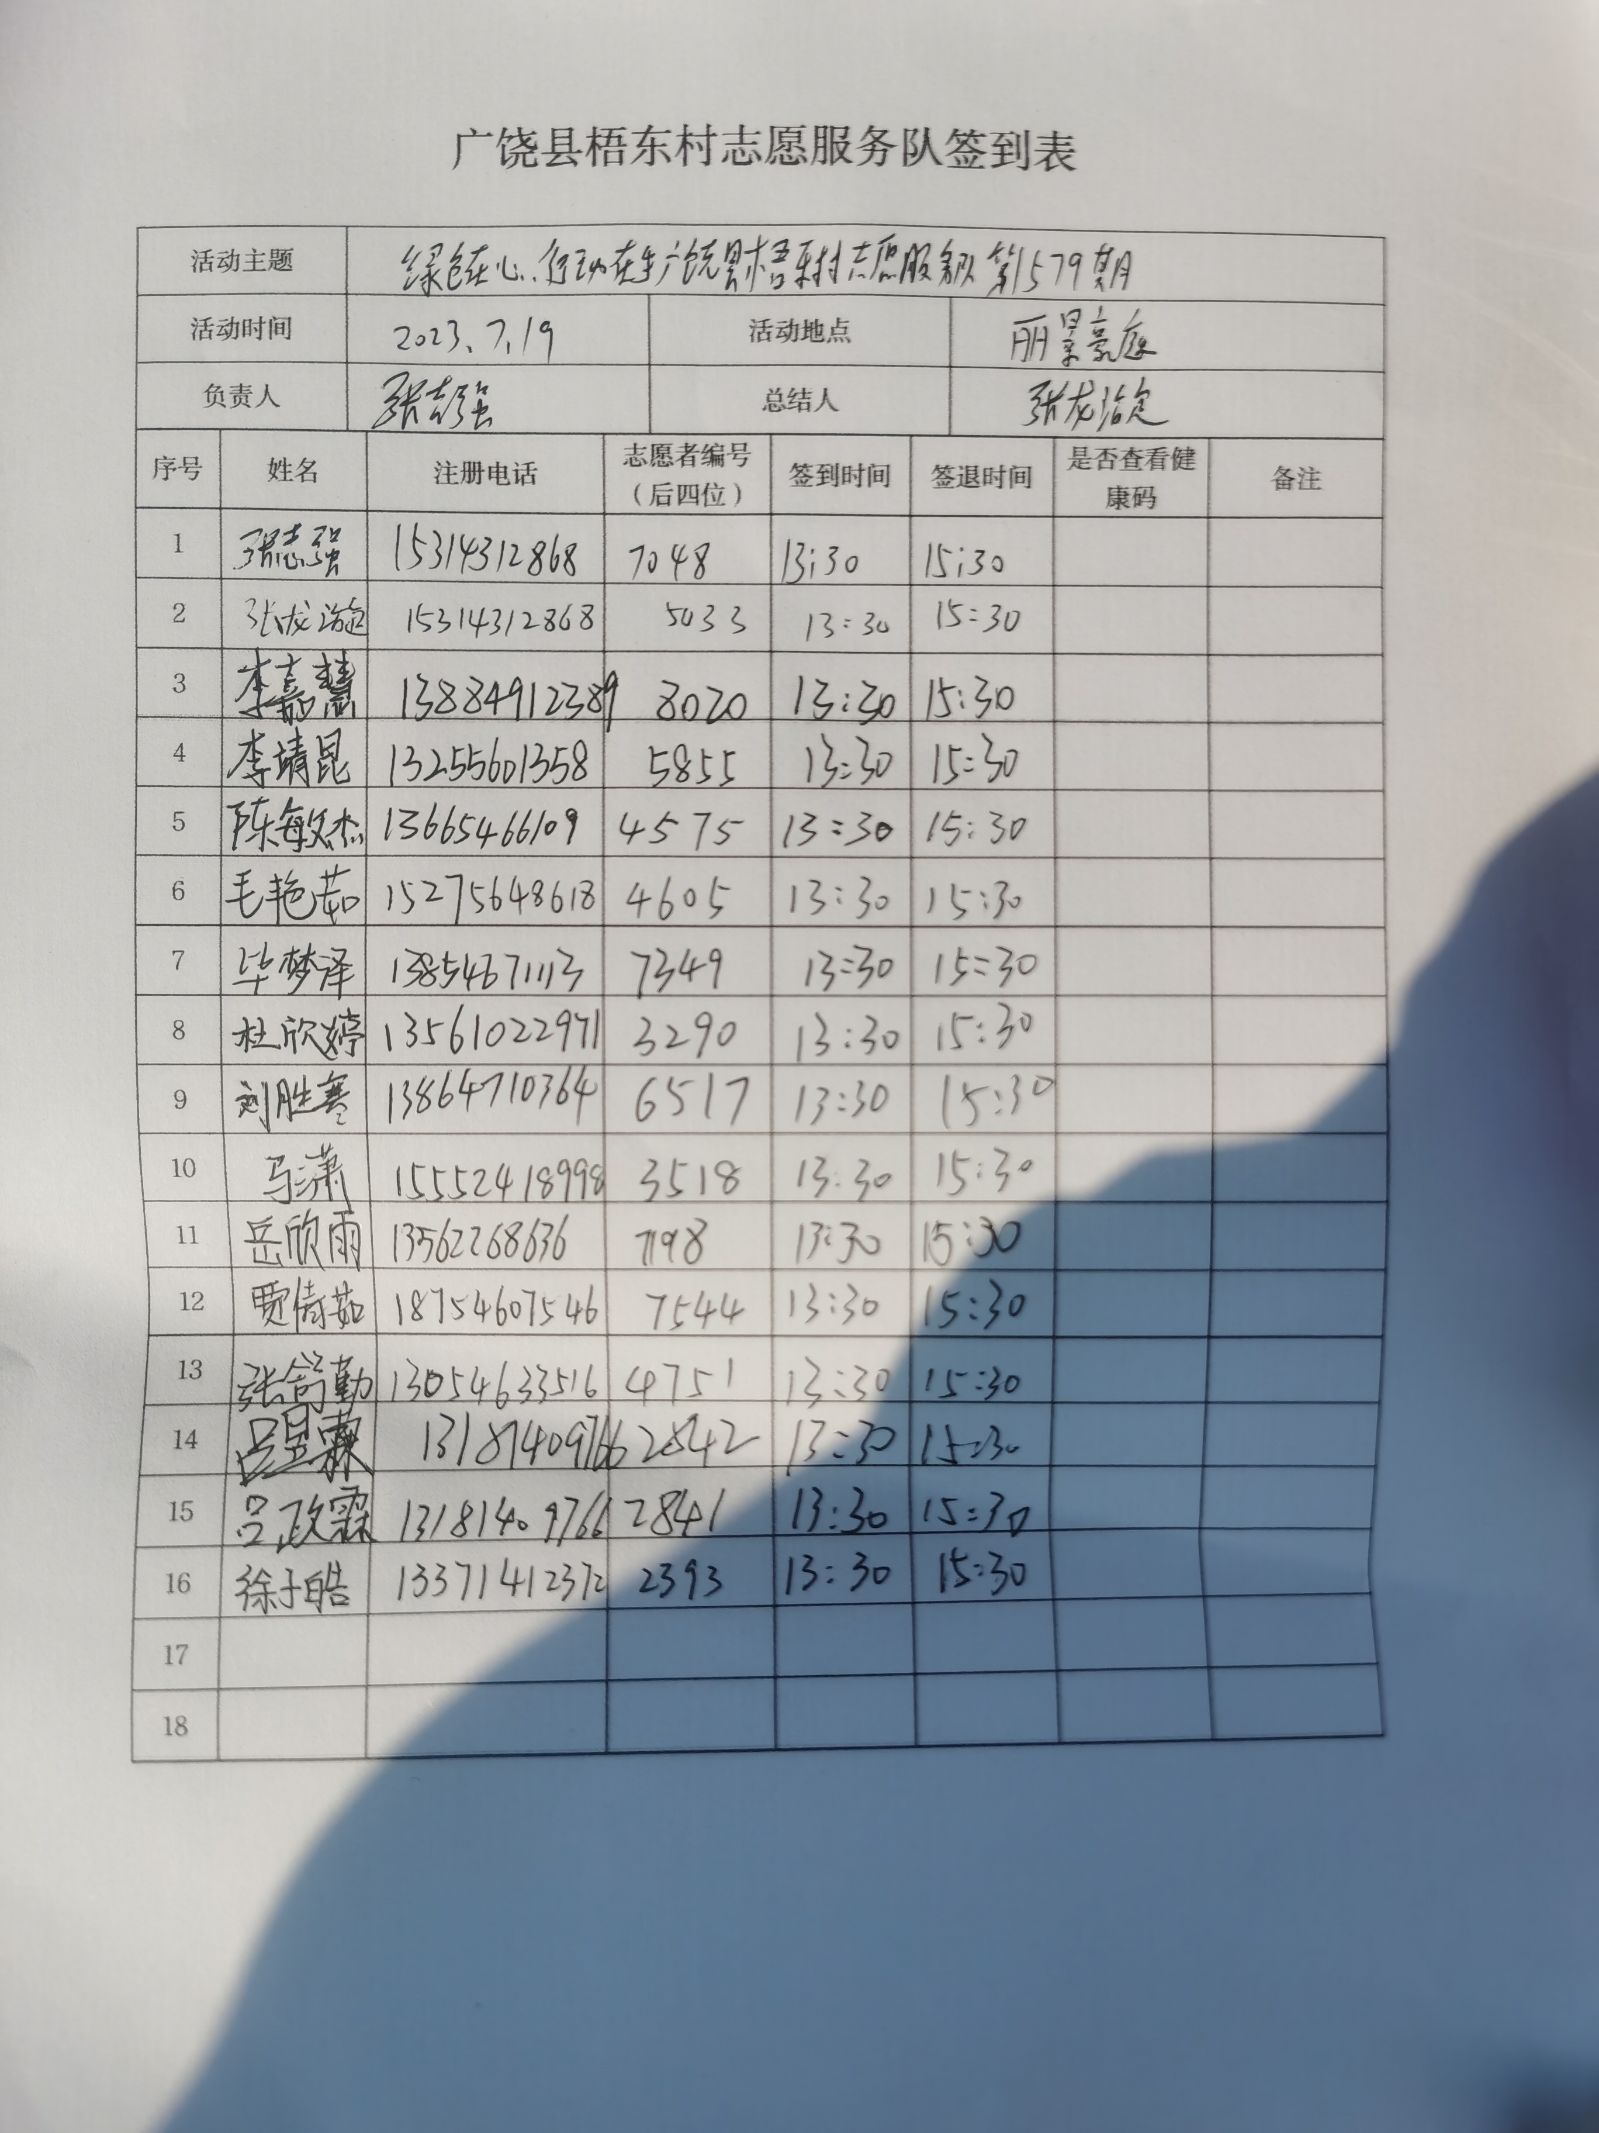 广饶县梧东村志愿服务队签到表
活动主题 绿色在心.行动在手广饶县梧东村志愿服务队第1579期
活动时间 2023.7.19 活动地点 丽景豪庭
负责人 张志强 总结人 张龙
序号 姓名 注册电话 志愿者编号（后四位） 签到时间 签退时间 是否查看健康码 备注
1 张志强 15314312868 7048 13:30 15:30
2 张龙 15314312868 5033 13:30 15:30
3 李嘉慧 13884912389 8020 13:30 15:30
4 李靖昆 13255601358 5855 13:30 15:30
5 陈敏杰 13665466109 4575 13:30 15:30
6 毛艳茹 15275648618 4605 13:30 15:30
7 毕梦泽 13854671113 7349 13:30 15:30
8 杜欣婷 13561022971 3290 13:30 15:30
9 刘胜寒 13864710364 6517 13:30 15:30
10 马潇 15552418998 3518 13:30 15:30
11 岳欣雨 13562268636 7198 13:30 15:30
12 贾倩茹 18754607546 7544 13:30 15:30
13 张舒勤 13054633516 4751 13:30 15:30
14 吕昱霖 13181409766 2842 13:30 15:30
15 吕政霖 13181409766 2841 13:30 15:30
16 徐子皓 13371412372 2393 13:30 15:30
17
18